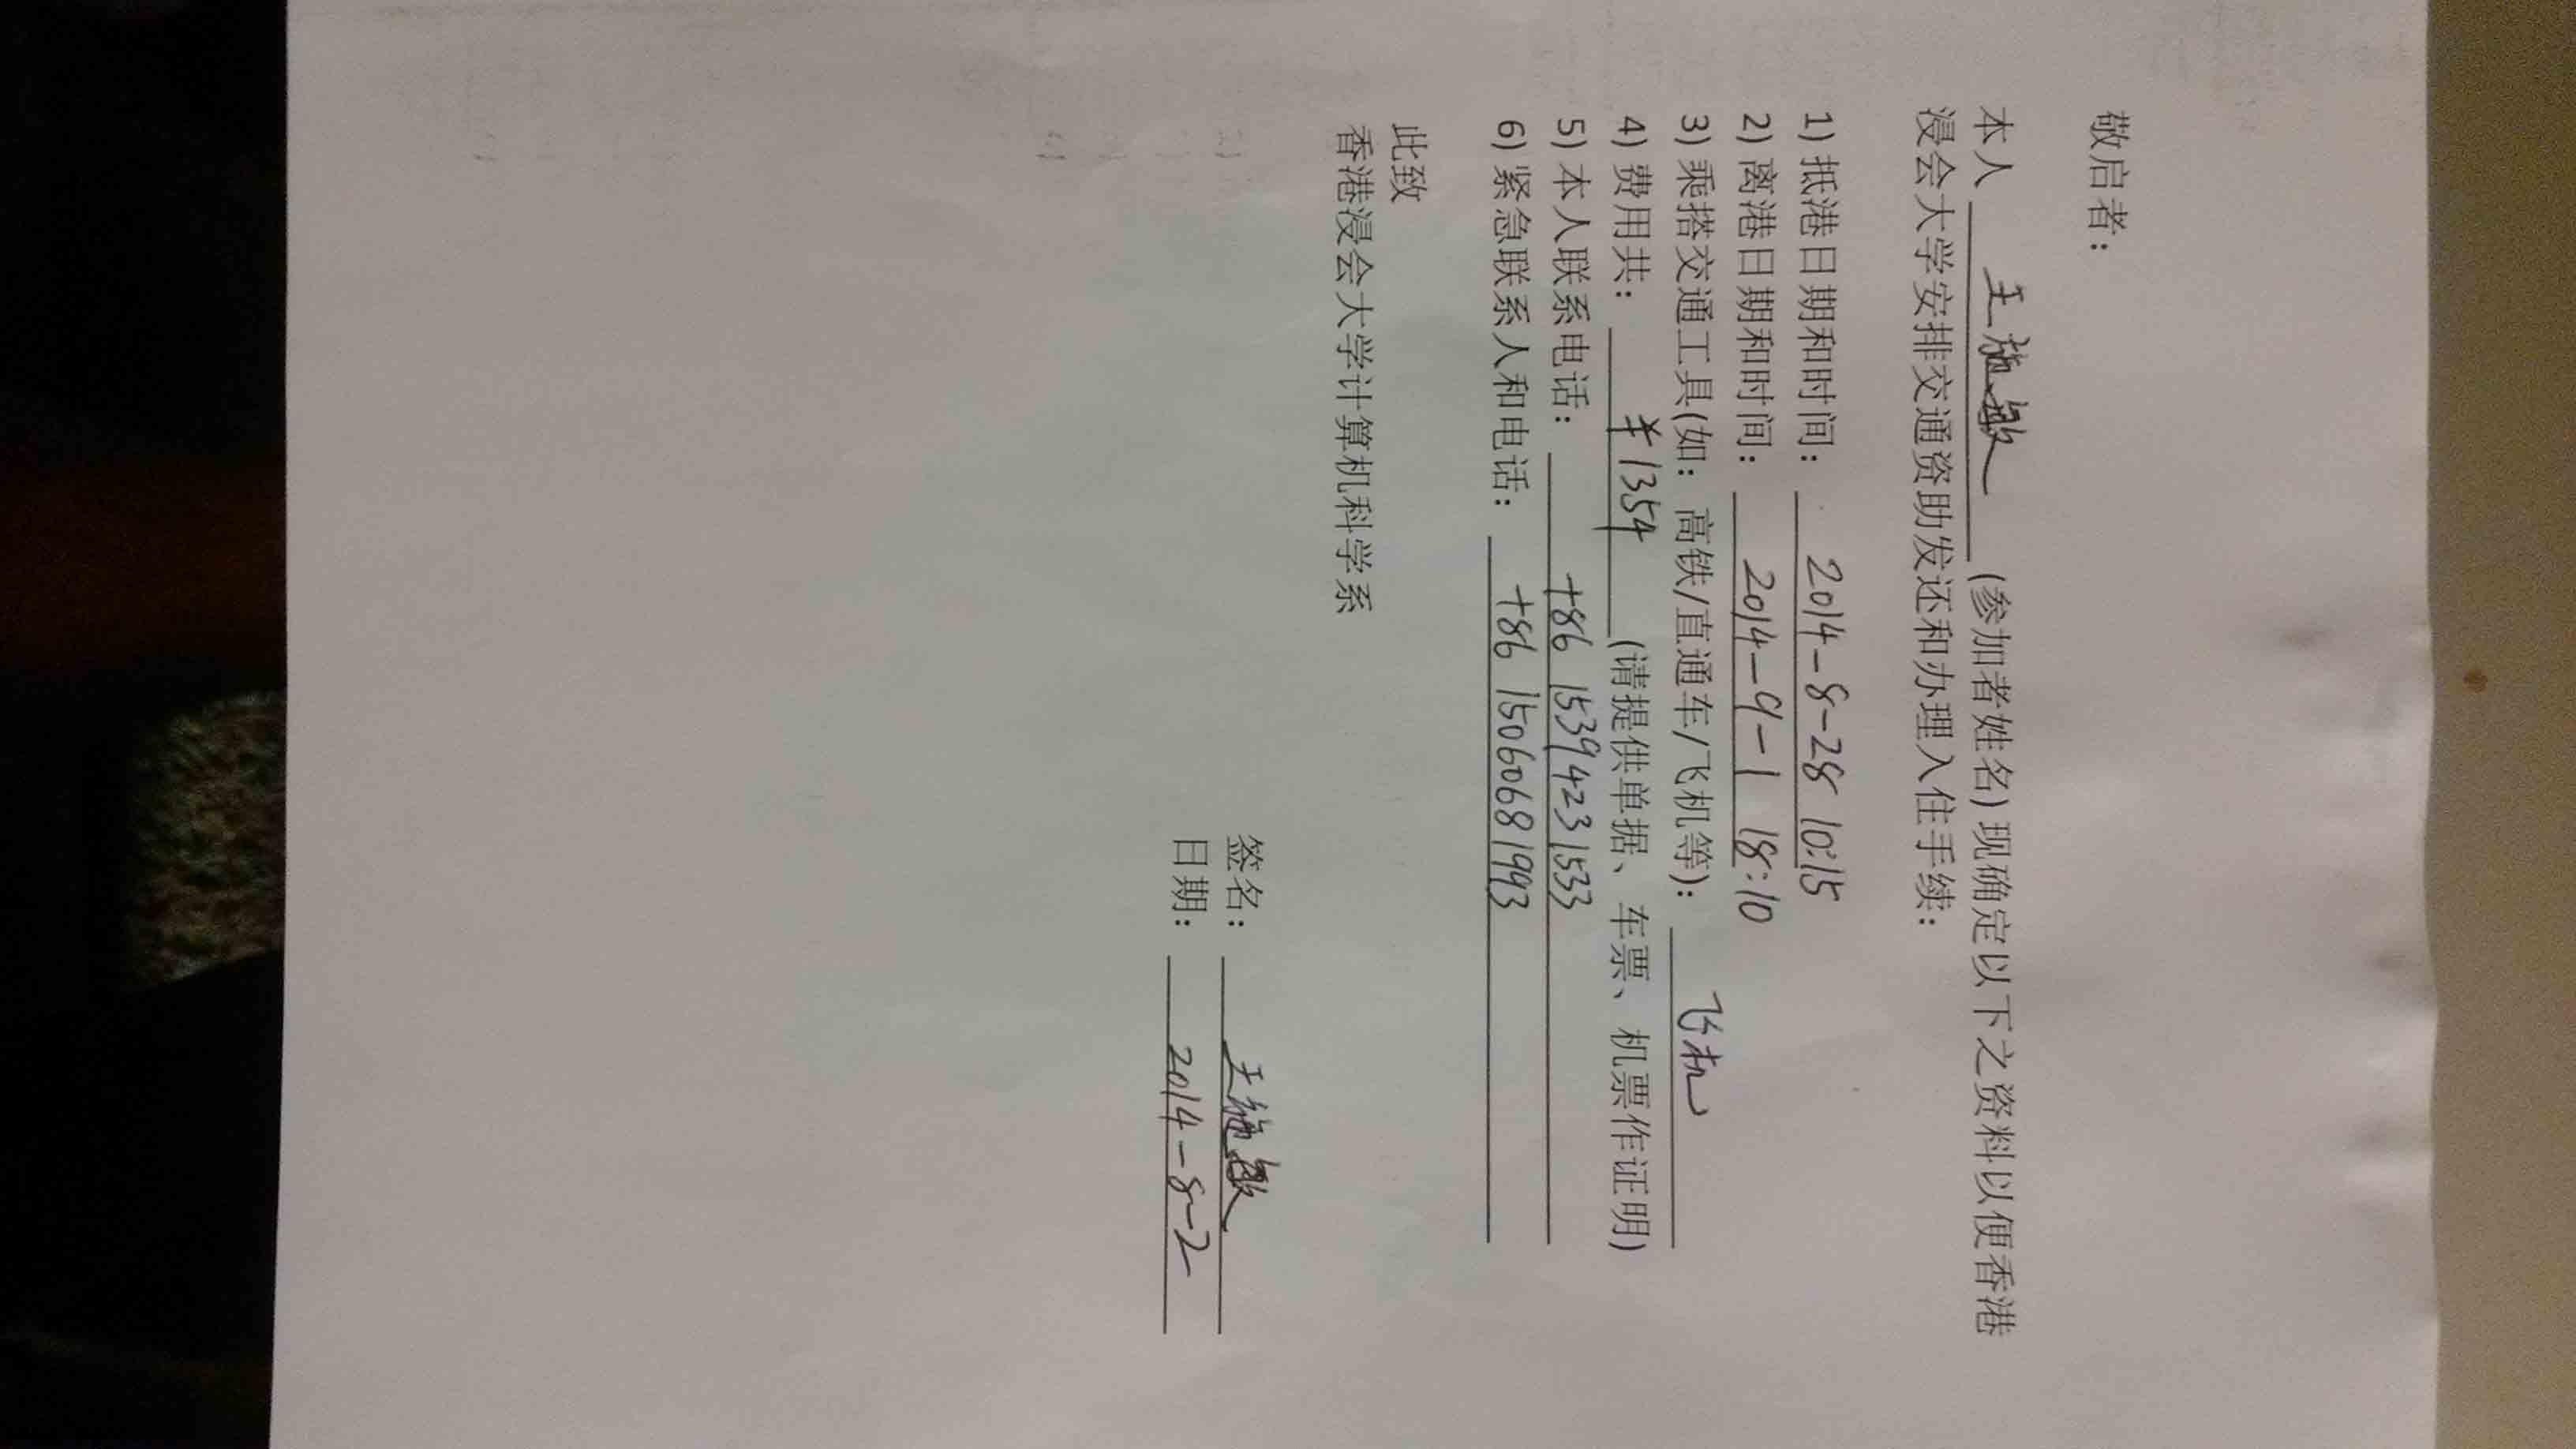 敬启者：
本人 王施敏 (参加者姓名) 现确定以下之资料以便香港
浸会大学安排交通资助发还和办理入住手续：
1) 抵港日期和时间： 2014-8-28 10:15
2) 离港日期和时间： 2014-9-1 18:10
3) 乘搭交通工具(如：高铁/直通车/飞机等)： 飞机
4) 费用共： ￥1354 (请提供单据、车票、机票作证明)
5) 本人联系电话： +86 15394231533
6) 紧急联系人和电话： +86 15060681993
此致
香港浸会大学计算机科学系
签名： 王施敏
日期： 2014-8-2